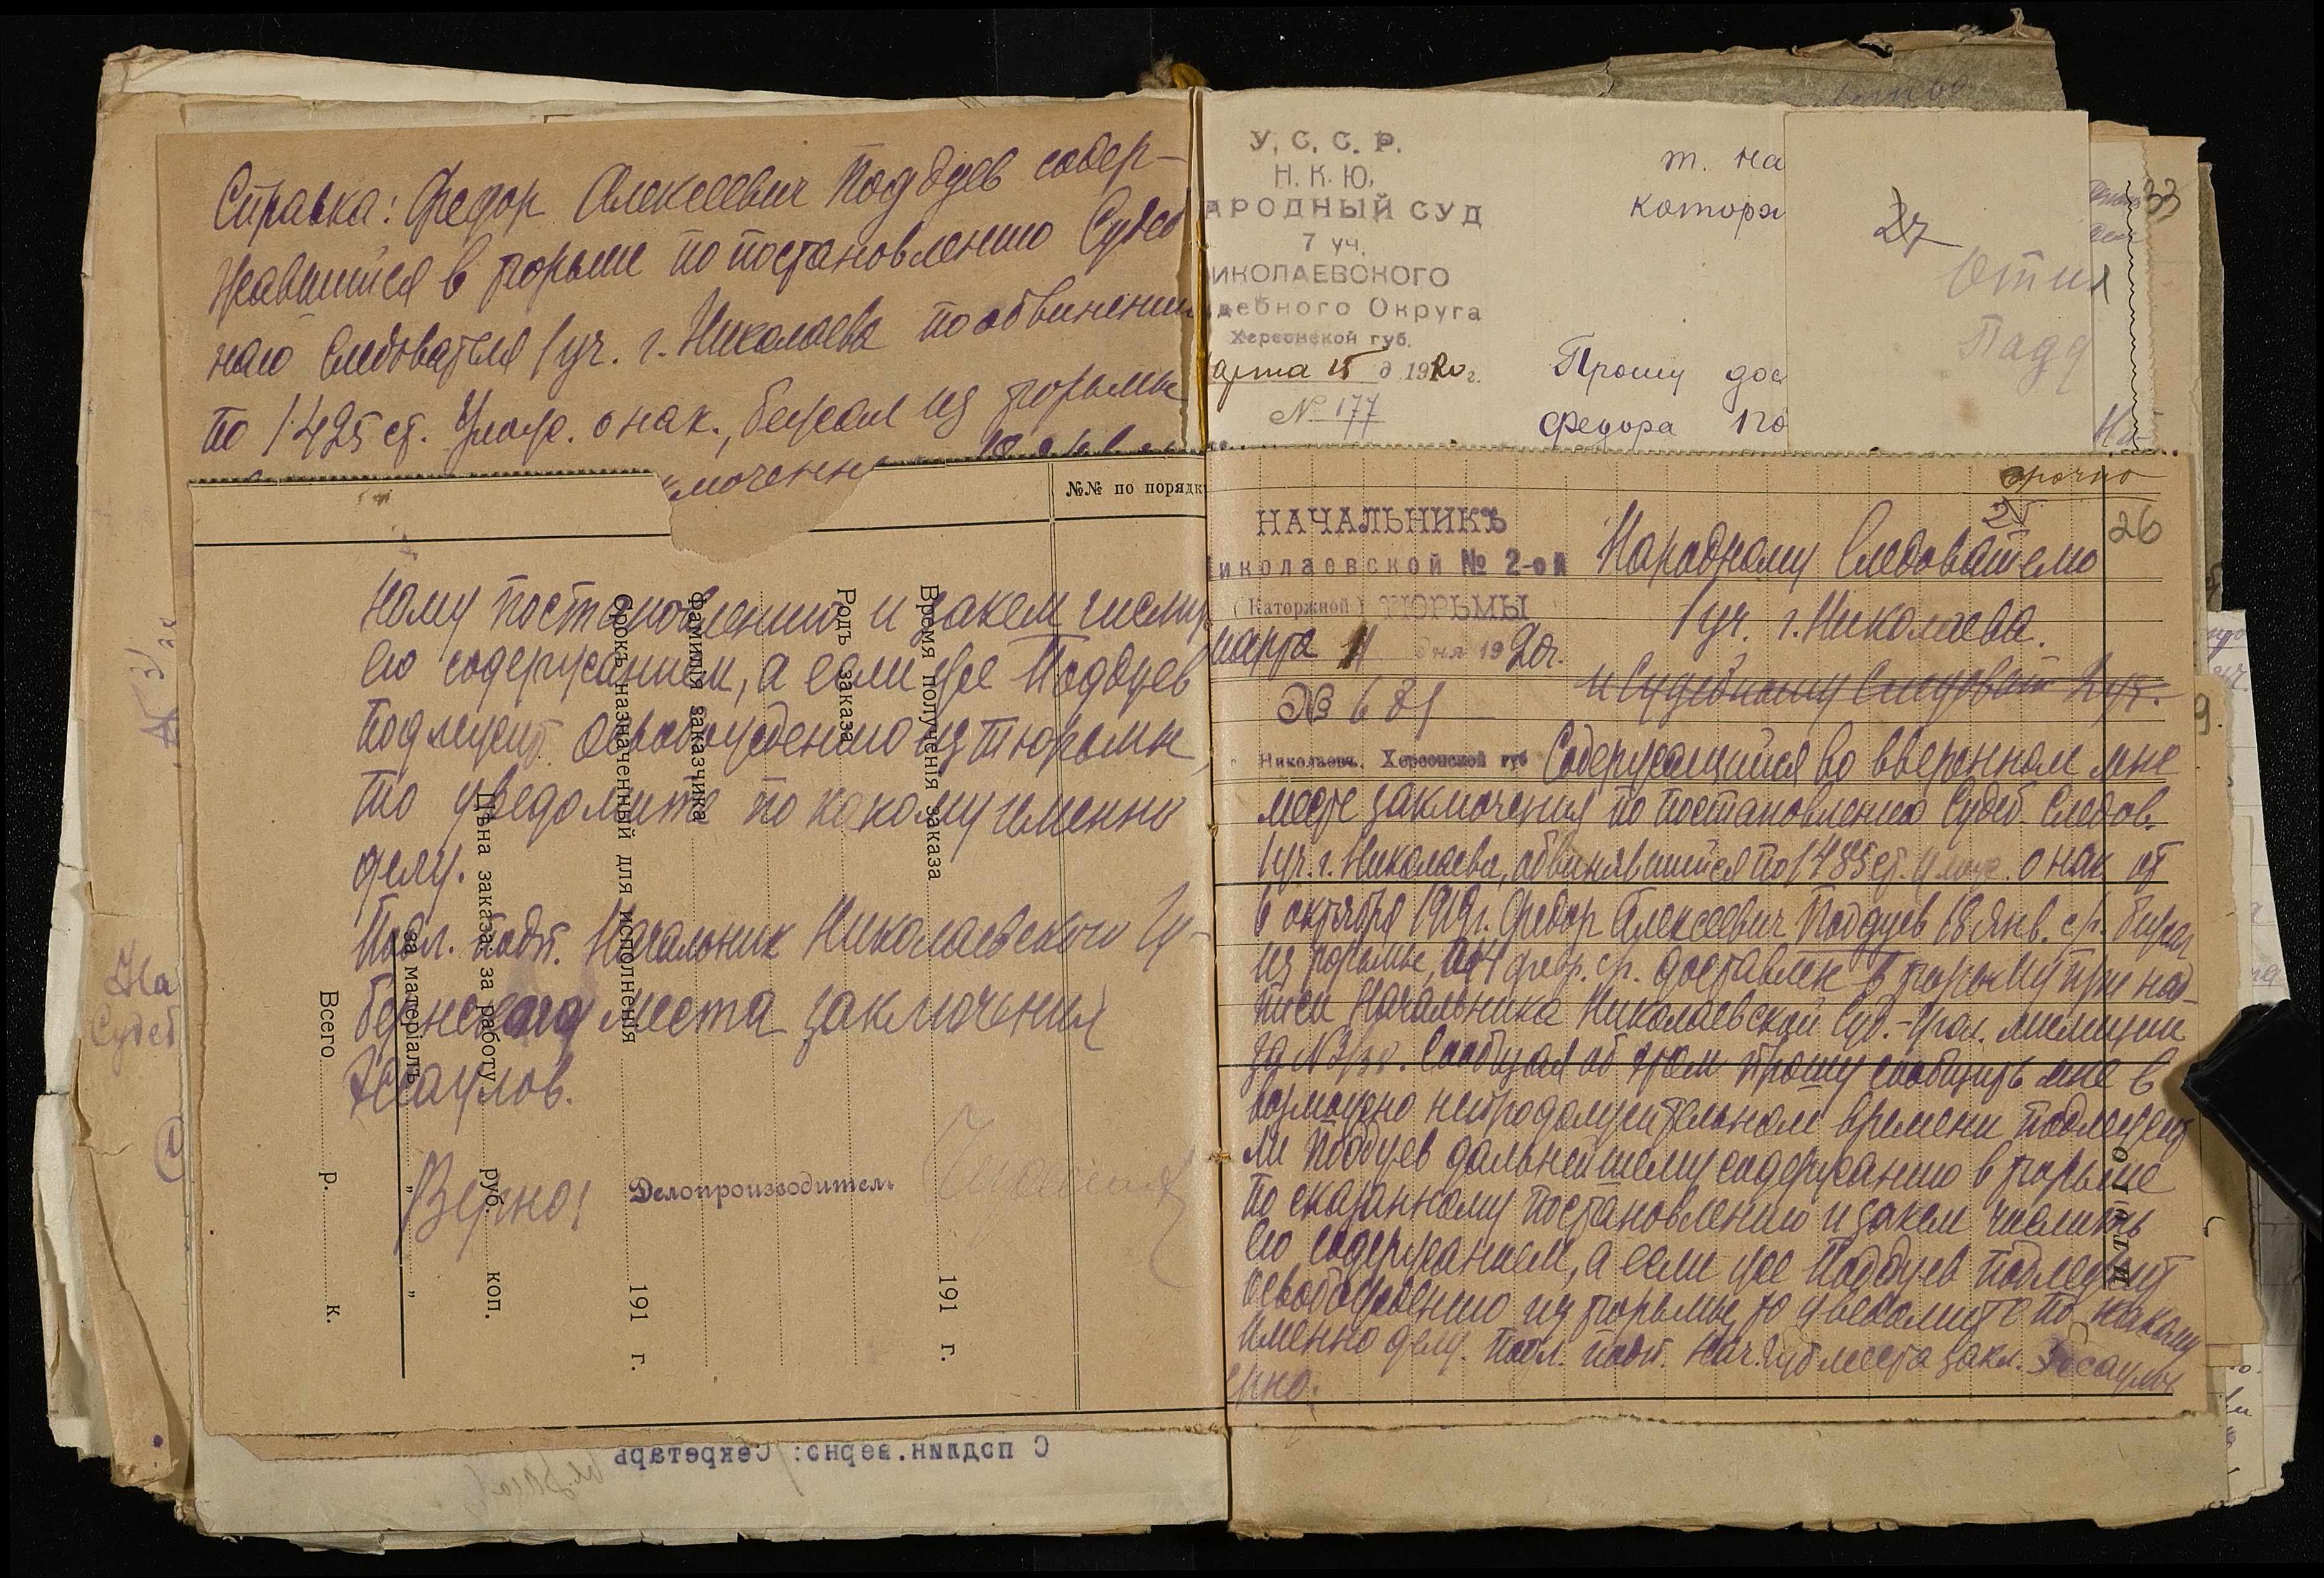 Справка: Федор Алексеевич Поддуев содер-
жавшийся в тюрьме по постановлению Судеб
наго Следователя 1 уч. г. Николаева по обвинению
по 1425 ст. Улож. о нак., бежал из тюрьмы
№№ по порядк
ному постановлению и за кем числить
его содержанием, а если же Поддуев
подлежит освобождению из тюрьмы,
то уведомите по какому именно
делу.
Подл. подп. Начальник Николаевского Гу-
бернского места заключения
Есаулов.
Верно:
Делопроизводитель
Время полученія заказа
191 г.
Родъ заказа
Фамилія заказчика
Срокъ назначенный для исполненія
191 г.
Цѣна заказа: за работу
руб.
коп.
за матеріалъ
" "
Всего
р.
к.
С подлин.верно: Секретарь
На
Судеб
У. С. С. Р.
Н. К. Ю.
АРОДНЫЙ СУД
7 уч.
ИКОЛАЕВСКОГО
дебного Округа
Херсонской губ.
арта 15 д 1920 г.
№ 177
т. На
котора
Прошу дос
Федора По
27
33
срочно
25
26
НАЧАЛЬНИКЪ
иколаевской № 2-ой
(Каторжной) ТЮРЬМЫ
марта 11 дня 1920г.
№ 681
Николаевъ, Херсонской губ
Народному Следователю
1 уч. г. Николаева.
и Судебному Следоват 2 уч.
Содержащийся во вверенном мне
месте заключения по постановлению Судеб. Следов.
1 уч. г. Николаева, обвинявшийся по 1485 ст. улож. о нак от
6 октября 1919г. Федор Алексеевич Поддуев 18 Янв. с/г. бежал
из тюрьмы, а 4 февр. с/г. доставлен в тюрьму при над-
писи Начальника Николаевской Суд.-Угол. милиции
за № 3130. Сообщая об этом прошу сообщить мне в
возможно непродолжительном времени подлежит
ли Поддуев дальнейшему содержанию в тюрьме
по сказанному постановлению и за кем числить
его содержанием, а если же Поддуев подлежит
освобождению из тюрьмы, то уведомите по какому
именно делу. Подл. подп. Нач. Губ места закл. Есаулов
ерно: